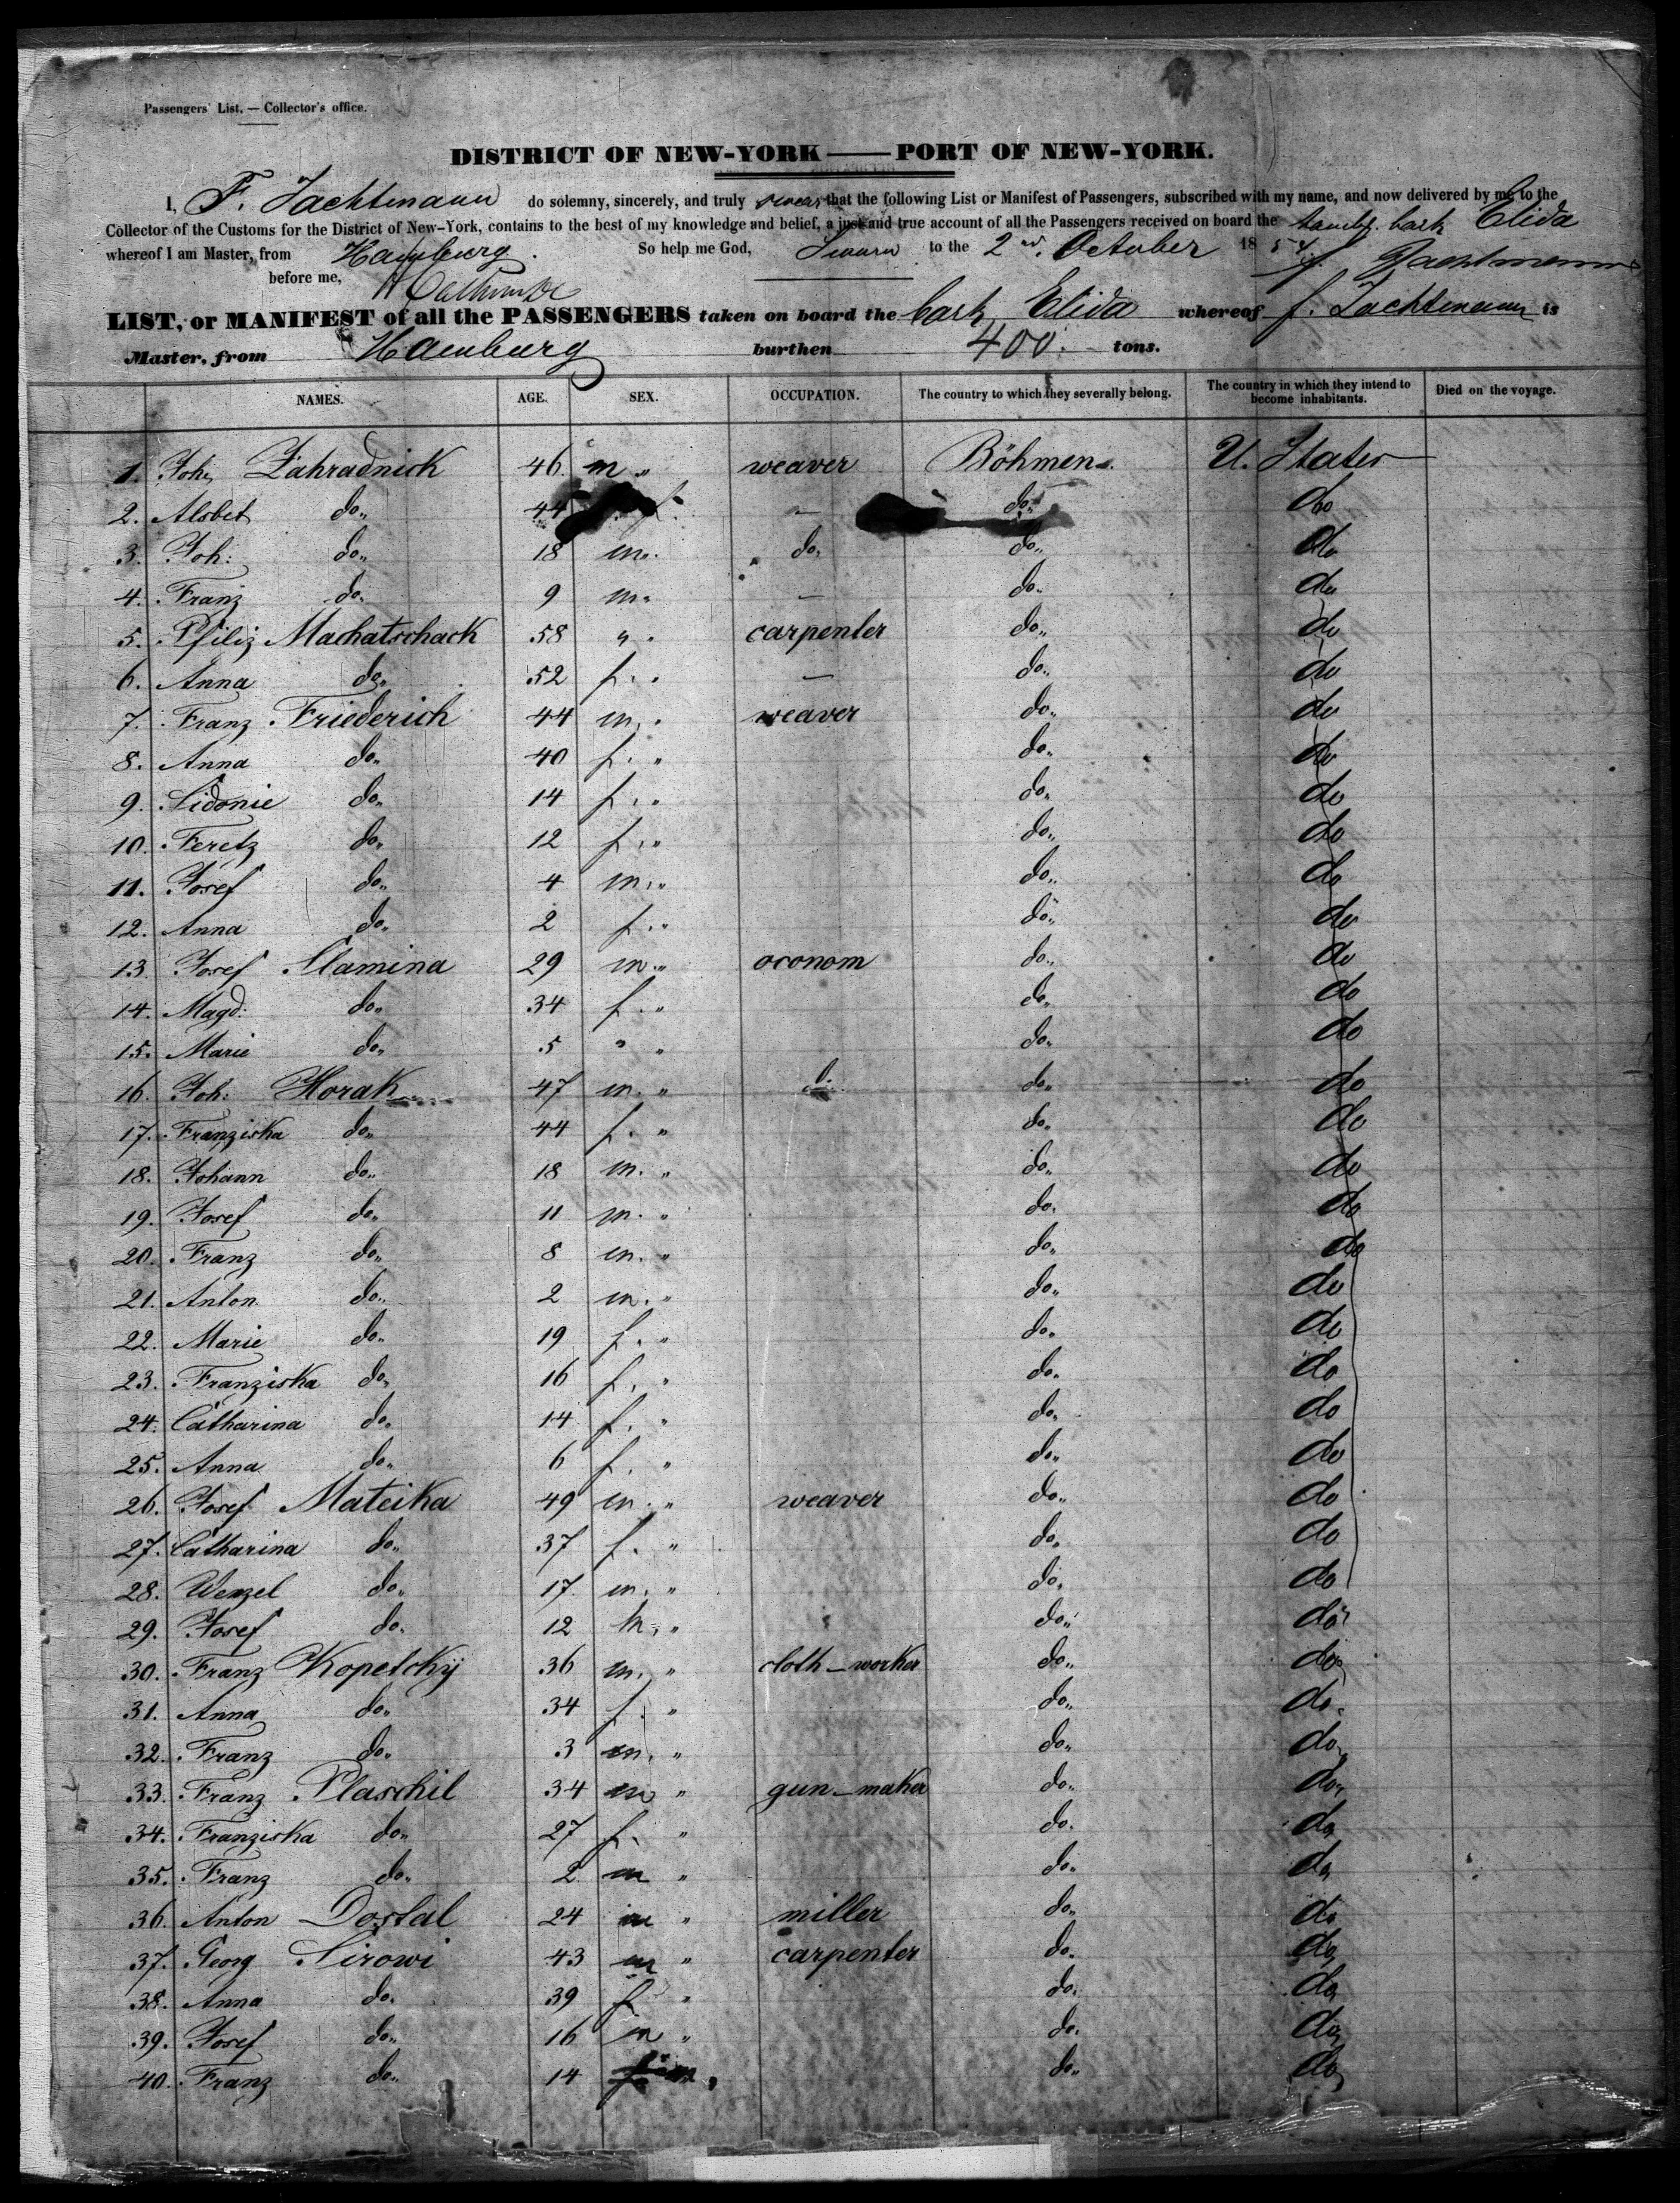 Passengers' List. — Collector's office.
DISTRICT OF NEW-YORK —— PORT OF NEW-YORK.
I, F. Jachtmann do solemny, sincerely, and truly swear that the following List or Manifest of Passengers, subscribed with my name, and now delivered by me to the
Collector of the Customs for the District of New-York, contains to the best of my knowledge and belief, a just and true account of all the Passengers received on board the hambg. bark Elida
whereof I am Master, from Hamburg. So help me God, Sworn to the 2nd October 1854 f. Jachtmann
before me,
LIST, or MANIFEST of all the PASSENGERS taken on board the bark Elida whereof f. Jachtmann is
Master, from Hamburg burthen 400. tons.
NAMES. AGE. SEX. OCCUPATION. The country to which they severally belong. The country in which they intend to become inhabitants. Died on the voyage.
1. Joh. Zahradnick 46 m " weaver Böhmen. U. States
2. Alsbet do. 44 f. — do. do
3. Joh: do. 18 m. do. do. do
4. Franz do. 9 m. — do. do
5. Pfiliz Machatschack 58 " . carpenter do. do
6. Anna do. 52 f. . — do. do
7. Franz Friederich 44 m. . weaver do. do
8. Anna do. 40 f. " do. do
9. Sidonie do. 14 f. " do. do
10. Feretz do. 12 f. " do. do
11. Josef do. 4 m. " do. do
12. Anna do. 2 f. " do. do
13. Josef Slamina 29 m. " oconom do. do
14. Magd: do. 34 f. " do. do
15. Marie do. 5 " " do. do
16. Joh: Horak 47 m. " d. do. do
17. Franziska do. 44 f. " do. do
18. Johann do. 18 m. " do. do
19. Josef do. 11 m. " do. do
20. Franz do. 8 m. " do. do
21. Anton do. 2 m. " do. do
22. Marie do. 19 f. " do. do
23. Franziska do. 16 f. " do. do
24. Catharina do. 14 f. " do. do
25. Anna do. 6 f. " do. do
26. Josef Mateika 49 m. " weaver do. do
27. Catharina do. 37 f. " do. do
28. Wenzel do. 17. m. " do. do
29. Josef do. 12 m. " do. do
30. Franz Kopetckÿ 36 m. " cloth-worker do. do
31. Anna do. 34 f. " do. do.
32. Franz do. 3 m. " do. do
33. Franz Plaschil 34 m " gun-maker do. do
34. Franziska do. 27 f. " do. do
35. Franz do. 2 m " do. do
36. Anton Dostal 24 m " miller do. do
37. Georg Sirowi 43 m " carpenter do. do
38. Anna do. 39 f " do. do
39. Josef do. 16 m " do. do
40. Franz do. 14 m do. do